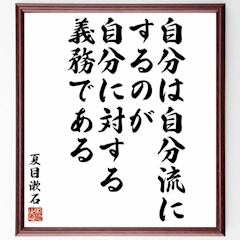 自分は自分流に
するのが
自分に対する
義務である
夏目漱石